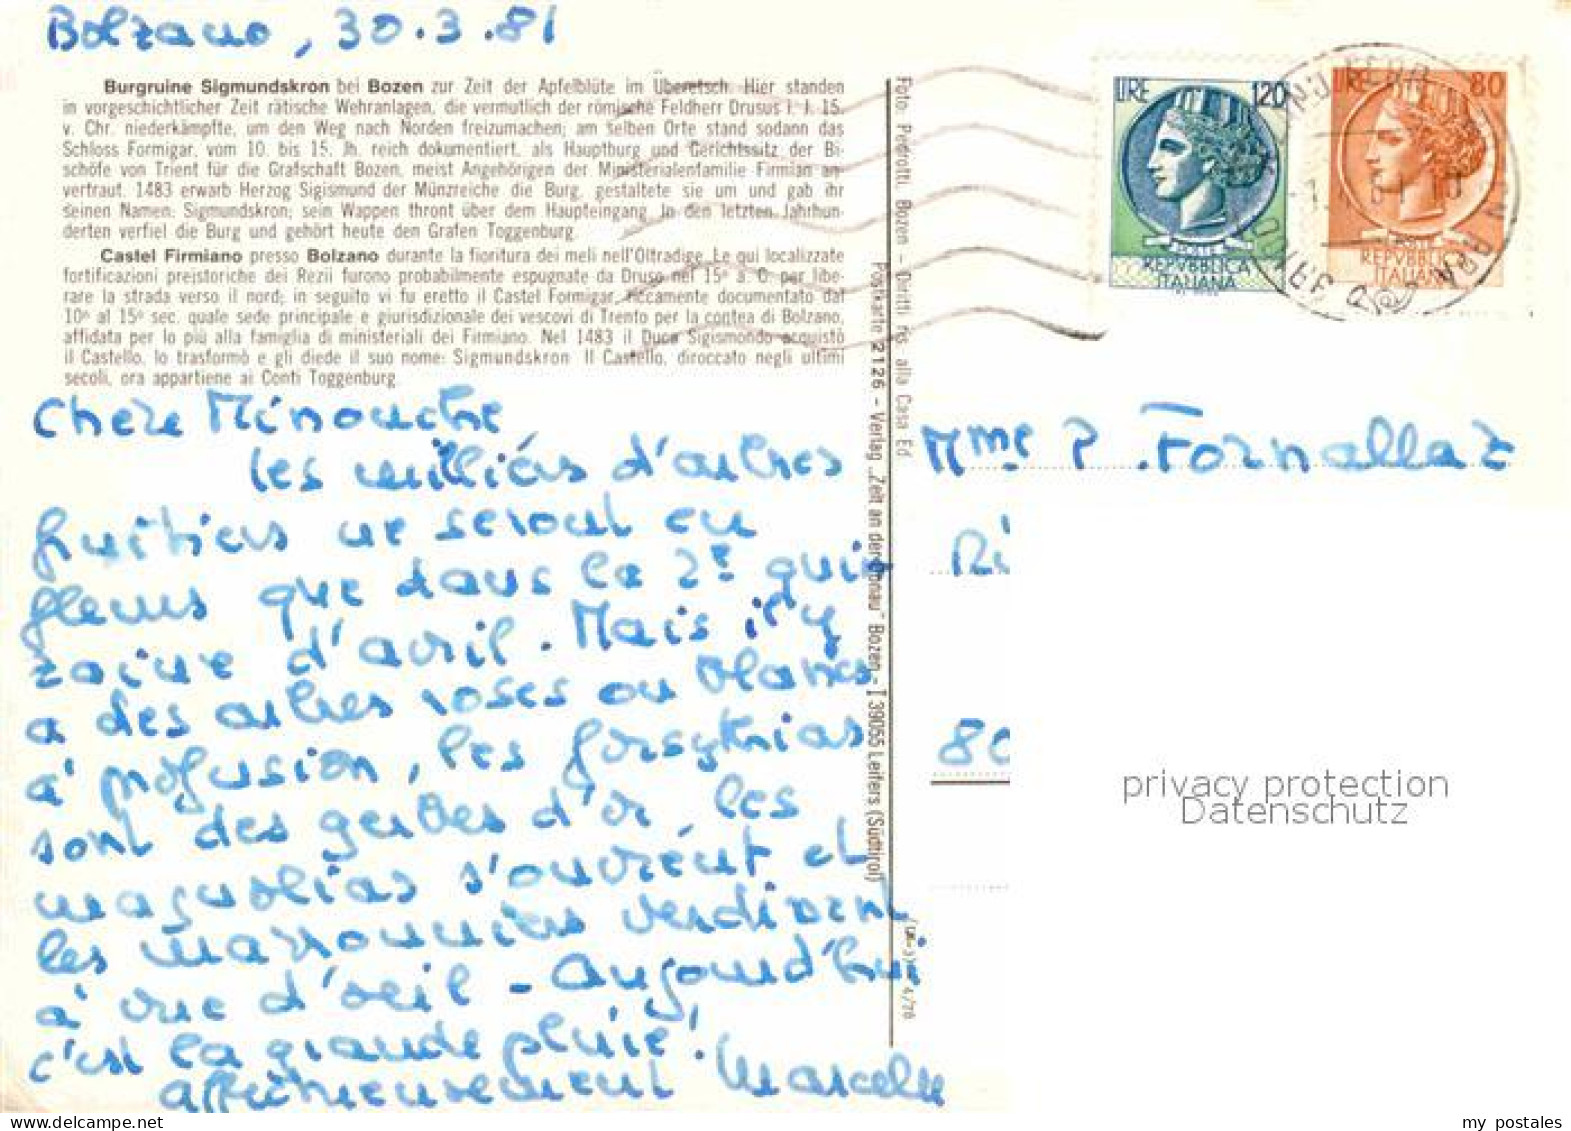 Bolzano, 30.3.81
Burgruine Sigmundskron bei Bozen zur Zeit der Apfelblüte im Überetsch. Hier standen
in vorgeschichtlicher Zeit rätische Wehranlagen, die vermutlich der römische Feldherr Drusus i. J. 15.
v. Chr. niederkämpfte, um den Weg nach Norden freizumachen; am selben Orte stand sodann das
Schloss Formigar, vom 10. bis 15. Jh. reich dokumentiert, als Hauptburg und Gerichtssitz der Bi-
schöfe von Trient für die Grafschaft Bozen, meist Angehörigen der Ministerialenfamilie Firmian an-
vertraut. 1483 erwarb Herzog Sigismund der Münzreiche die Burg, gestaltete sie um und gab ihr
seinen Namen: Sigmundskron; sein Wappen thront über dem Haupteingang. In den letzten Jahrhun-
derten verfiel die Burg und gehört heute den Grafen Toggenburg.
Castel Firmiano presso Bolzano durante la fioritura dei meli nell'Oltradige. Le qui localizzate
fortificazioni preistoriche dei Rezii furono probabilmente espugnate da Druso nel 15º a. C. per libe-
rare la strada verso il nord; in seguito vi fu eretto il Castel Formigar, riccamente documentato dal
10º al 15º sec. quale sede principale e giurisdizionale dei vescovi di Trento per la contea di Bolzano,
affidata per lo più alla famiglia di ministeriali dei Firmiano. Nel 1483 il Duca Sigismondo acquistò
il Castello, lo trasformò e gli diede il suo nome: Sigmundskron. Il Castello, diroccato negli ultimi
secoli, ora appartiene ai Conti Toggenburg.
Chère Minouche
les milliers d'arbres
fruitiers ne seront en
fleurs que dans la 2e quin
zaine d'avril. Mais il y
a des arbres roses ou blancs
à profusion, les forsythias
sont des gerbes d'or, les
magnolias s'ouvrent et
les marronniers verdissent
à vue d'œil - Aujourd'hui
c'est la grande pluie!
Affectueusement Marcelle
Foto: Pedrotti, Bozen - Diritti ris. alla Casa Ed.
Postkarte 2126 - Verlag "Zeit an der Donau" Bozen - I 39055 Leifers (Südtirol)
4/78
LIRE 120
POSTE
REPVBBLICA
ITALIANA
LIRE 80
POSTE
REPVBBLICA
ITALIANA
Mme P. Fornallaz
Ri
80
privacy protection
Datenschutz
my postales